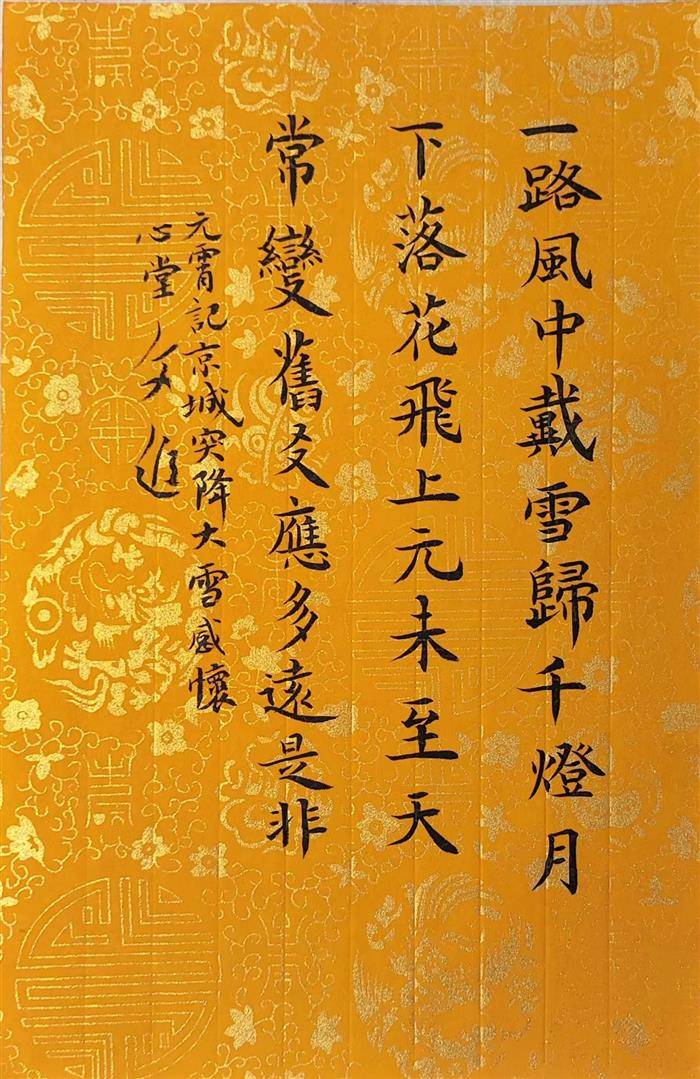 一路風中戴雪歸千燈月
下落花飛上元未至天
常變舊㕛應多遠是非
元霄記京城突降大雪感懷
心堂進